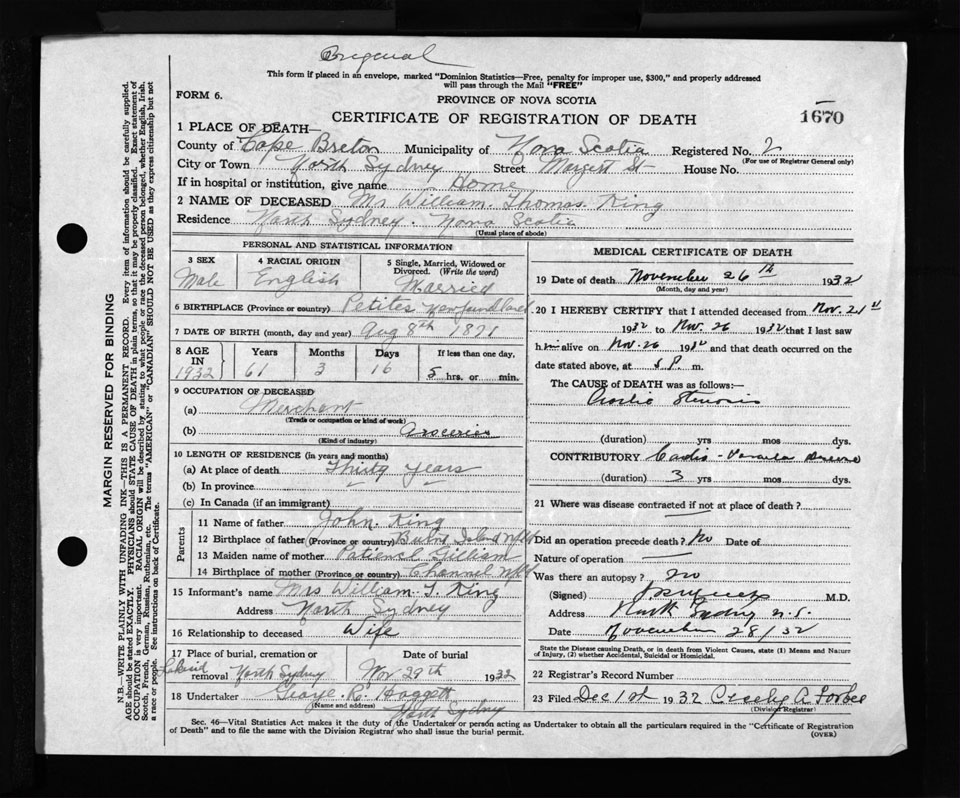 Original
This form if placed in an envelope, marked "Dominion Statistics—Free, penalty for improper use, $300," and properly addressed
will pass through the Mail "FREE"
FORM 6.
PROVINCE OF NOVA SCOTIA
CERTIFICATE OF REGISTRATION OF DEATH
1670
1 PLACE OF DEATH—
County of Cape Breton Municipality of Nova Scotia Registered No. 2
(For use of Registrar General only)
City or Town North Sydney Street St House No.
If in hospital or institution, give name Home
2 NAME OF DECEASED Mr William Thomas King
Residence North Sydney. Nova Scotia
(Usual place of abode)
MARGIN RESERVED FOR BINDING
N.B.—WRITE PLAINLY WITH UNFADING INK—THIS IS A PERMANENT RECORD. Every item of information should be carefully supplied.
AGE should be stated EXACTLY. PHYSICIANS should STATE CAUSE OF DEATH in plain terms, so that it may be properly classified. Exact statement of
OCCUPATION is very important. RACIAL ORIGIN will be described by stating to what people or race the deceased person belonged, whether English, Irish,
Scotch, French, German, Russian, Ruthenian, etc. The terms "AMERICAN" or "CANADIAN" SHOULD NOT BE USED as they express citizenship but not
a race or people. See instructions on back of Certificate.
PERSONAL AND STATISTICAL INFORMATION
3 SEX
Male
4 RACIAL ORIGIN
English
5 Single, Married, Widowed or
Divorced. (Write the word)
Married
6 BIRTHPLACE (Province or country) Petites Newfoundland
7 DATE OF BIRTH (month, day and year) Aug 8th 1871
8 AGE IN 1932
Years 61
Months 3
Days 16
If less than one day,
5 hrs. or min.
9 OCCUPATION OF DECEASED
(a) Merchant
(Trade or occupation or kind of work)
(b) Groceries
(Kind of industry)
10 LENGTH OF RESIDENCE (in years and months)
(a) At place of death Thirty years
(b) In province
(c) In Canada (if an immigrant)
Parents
11 Name of father John King
12 Birthplace of father (Province or country) Island Nfld
13 Maiden name of mother Patience Gilliam
14 Birthplace of mother (Province or country) Channel Nfld
15 Informant's name Mrs William T. King
Address North Sydney
16 Relationship to deceased Wife
17 Place of burial, cremation or
removal Lakeside North Sydney
Date of burial
Nov 29th 1932
18 Undertaker George R. Haggett
(Name and address)
North Sydney
MEDICAL CERTIFICATE OF DEATH
19 Date of death November 26th 1932
(Month, day and year)
20 I HEREBY CERTIFY that I attended deceased from Nov. 21st
1932 to Nov. 26 1932 that I last saw
him alive on Nov. 26 1932 and that death occurred on the
date stated above, at 5 P. m.
The CAUSE of DEATH was as follows:—
Aortic Stenosis
(duration) yrs mos dys.
CONTRIBUTORY Cardio-Vascular
(duration) 3 yrs mos dys.
21 Where was disease contracted if not at place of death?
Did an operation precede death? No Date of
Nature of operation
Was there an autopsy? no
(Signed) M.D.
Address North Sydney N.S.
Date November 28/32
State the Disease causing Death, or in death from Violent Causes, state (1) Means and Nature
of Injury, (2) whether Accidental, Suicidal or Homicidal.
22 Registrar's Record Number
23 Filed Dec 1st 1932 Cecily A Forbes
(Division Registrar)
Sec. 46—Vital Statistics Act makes it the duty of the Undertaker or person acting as Undertaker to obtain all the particulars required in the "Certificate of Registration
of Death" and to file the same with the Division Registrar who shall issue the burial permit.
(OVER)